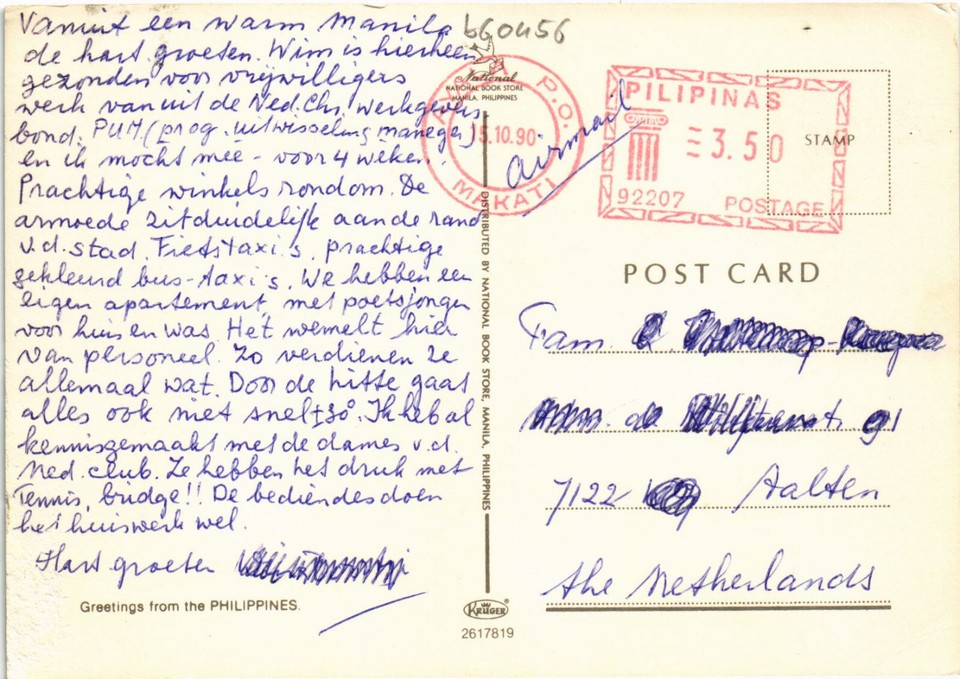 Vanuit een warm Manila
de hart. groeten. Wim is hierheen
gezonden voor vrijwilligers
werk vanuit de Ned. Chr. werkgevers
bond. PUM (prog. uitwisseling maneger)
en ik mocht mee - voor 4 weken.
Prachtige winkels rondom. De
armoede zit duidelijk aan de rand
v.d. stad. Fietstaxi's, prachtige
gekleurd bus-taxi's. We hebben een
eigen apartement, met poetsjongen
voor huis en was. Het wemelt hier
van personeel. Zo verdienen ze
allemaal wat. Door de hitte gaat
alles ook niet snel ±30°. Ik heb al
kennisgemaakt met de dames v.d.
Ned. club. Ze hebben het druk met
Tennis, bridge!! De bediendes doen
het huiswerk wel.
Hart groeten
Greetings from the PHILIPPINES.
b60456
National
NATIONAL BOOK STORE
MANILA, PHILIPPINES
P.O.
15.10.90
MAKATI
airmail
DISTRIBUTED BY NATIONAL BOOK STORE, MANILA, PHILIPPINES
KRÜGER®
2617819
PILIPINAS
3.50
92207 POSTAGE
STAMP
POST CARD
Fam.
de 91
7122 Aalten
the Netherlands